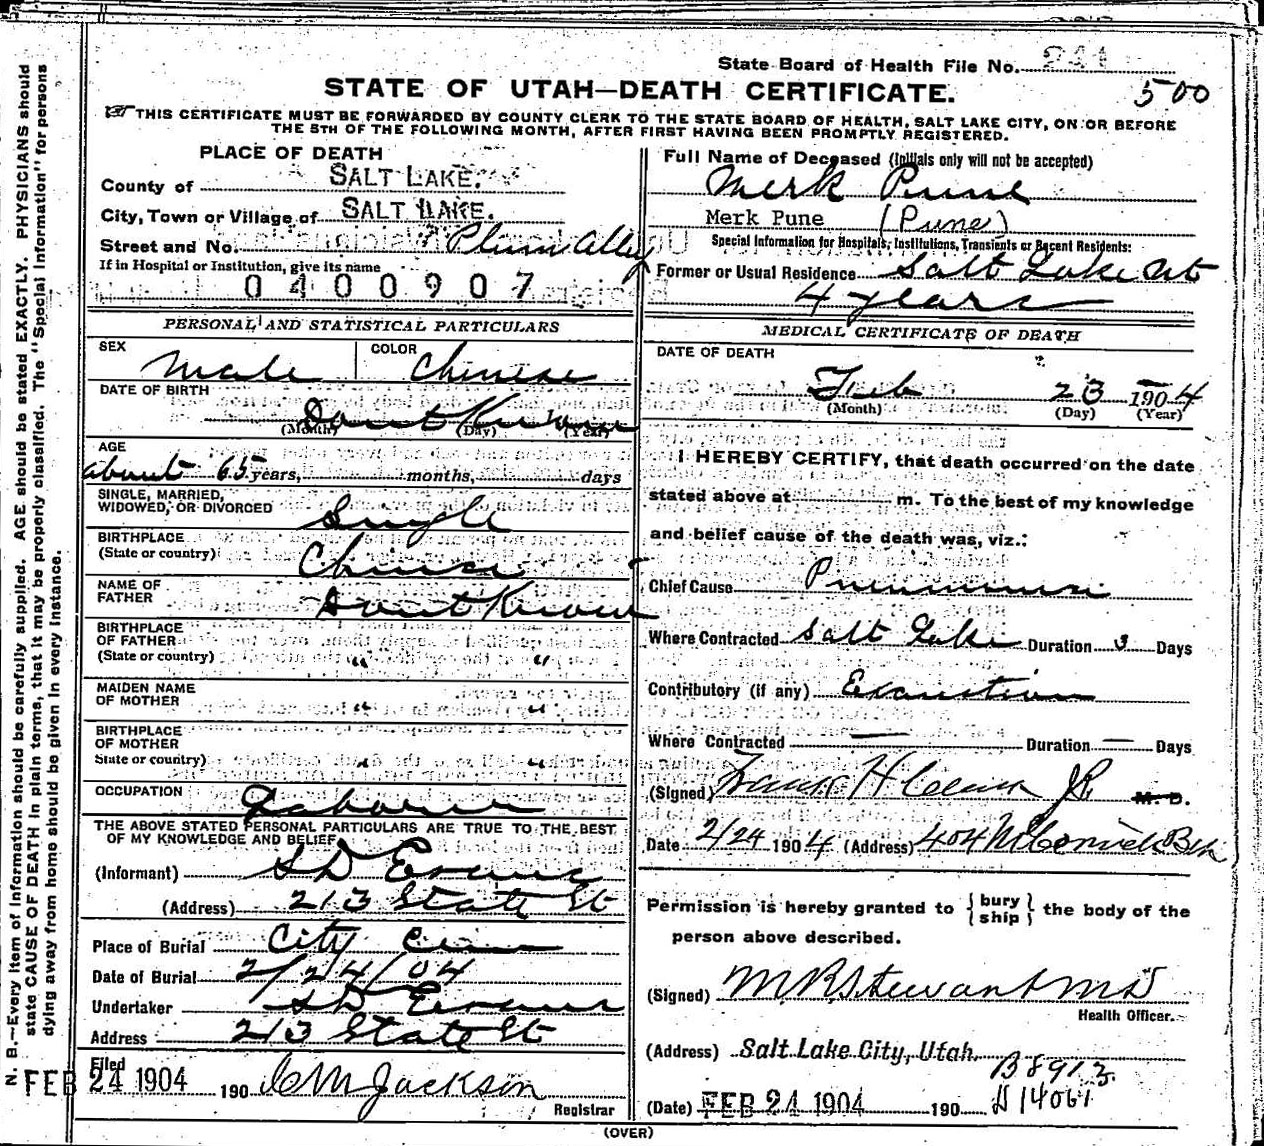 State Board of Health File No. 244
STATE OF UTAH—DEATH CERTIFICATE.
500
THIS CERTIFICATE MUST BE FORWARDED BY COUNTY CLERK TO THE STATE BOARD OF HEALTH, SALT LAKE CITY, ON OR BEFORE
THE 5TH OF THE FOLLOWING MONTH, AFTER FIRST HAVING BEEN PROMPTLY REGISTERED.
PLACE OF DEATH
County of SALT LAKE.
City, Town or Village of SALT LAKE.
Street and No. Plum Alley
If in Hospital or Institution, give its name
0400907
Full Name of Deceased (Initials only will not be accepted)
Merk Pune
Merk Pune (Pune)
Special Information for Hospitals, Institutions, Transients or Recent Residents:
Former or Usual Residence Salt Lake
4 years
PERSONAL AND STATISTICAL PARTICULARS
SEX Male COLOR Chinese
DATE OF BIRTH
Dont Know
(Month) (Day) (Year)
AGE
about 65 years, months, days
SINGLE, MARRIED,
WIDOWED, OR DIVORCED Single
BIRTHPLACE
(State or country) Chinese
NAME OF
FATHER Dont Know
BIRTHPLACE
OF FATHER
(State or country) " "
MAIDEN NAME
OF MOTHER " "
BIRTHPLACE
OF MOTHER
State or country) " "
OCCUPATION Laborer
THE ABOVE STATED PERSONAL PARTICULARS ARE TRUE TO THE BEST
OF MY KNOWLEDGE AND BELIEF
(Informant) S D Evans
(Address) 213 State St
Place of Burial City Cem
Date of Burial 2/24/04
Undertaker S D Evans
Address 213 State St
Filed
FEB 24 1904 190 C M Jackson
Registrar
MEDICAL CERTIFICATE OF DEATH
DATE OF DEATH
Feb 23 1904
(Month) (Day) (Year)
I HEREBY CERTIFY, that death occurred on the date
stated above at m. To the best of my knowledge
and belief cause of the death was, viz.:
Chief Cause Pneumonia
Where Contracted Salt Lake Duration 3 Days
Contributory (if any) Exaustion
Where Contracted — Duration — Days
(Signed) H JR M. D.
Date 2/24 1904 (Address) 404 McCornick Blk
Permission is hereby granted to {bury
ship} the body of the
person above described.
(Signed) M R Stewart M D
Health Officer.
(Address) Salt Lake City, Utah.
B 8913
H 14061
(Date) FEB 24 1904 190
(OVER)
N. B.—Every item of information should be carefully supplied. AGE should be stated EXACTLY. PHYSICIANS should
state CAUSE OF DEATH in plain terms, that it may be properly classified. The "Special Information" for persons
dying away from home should be given in every instance.